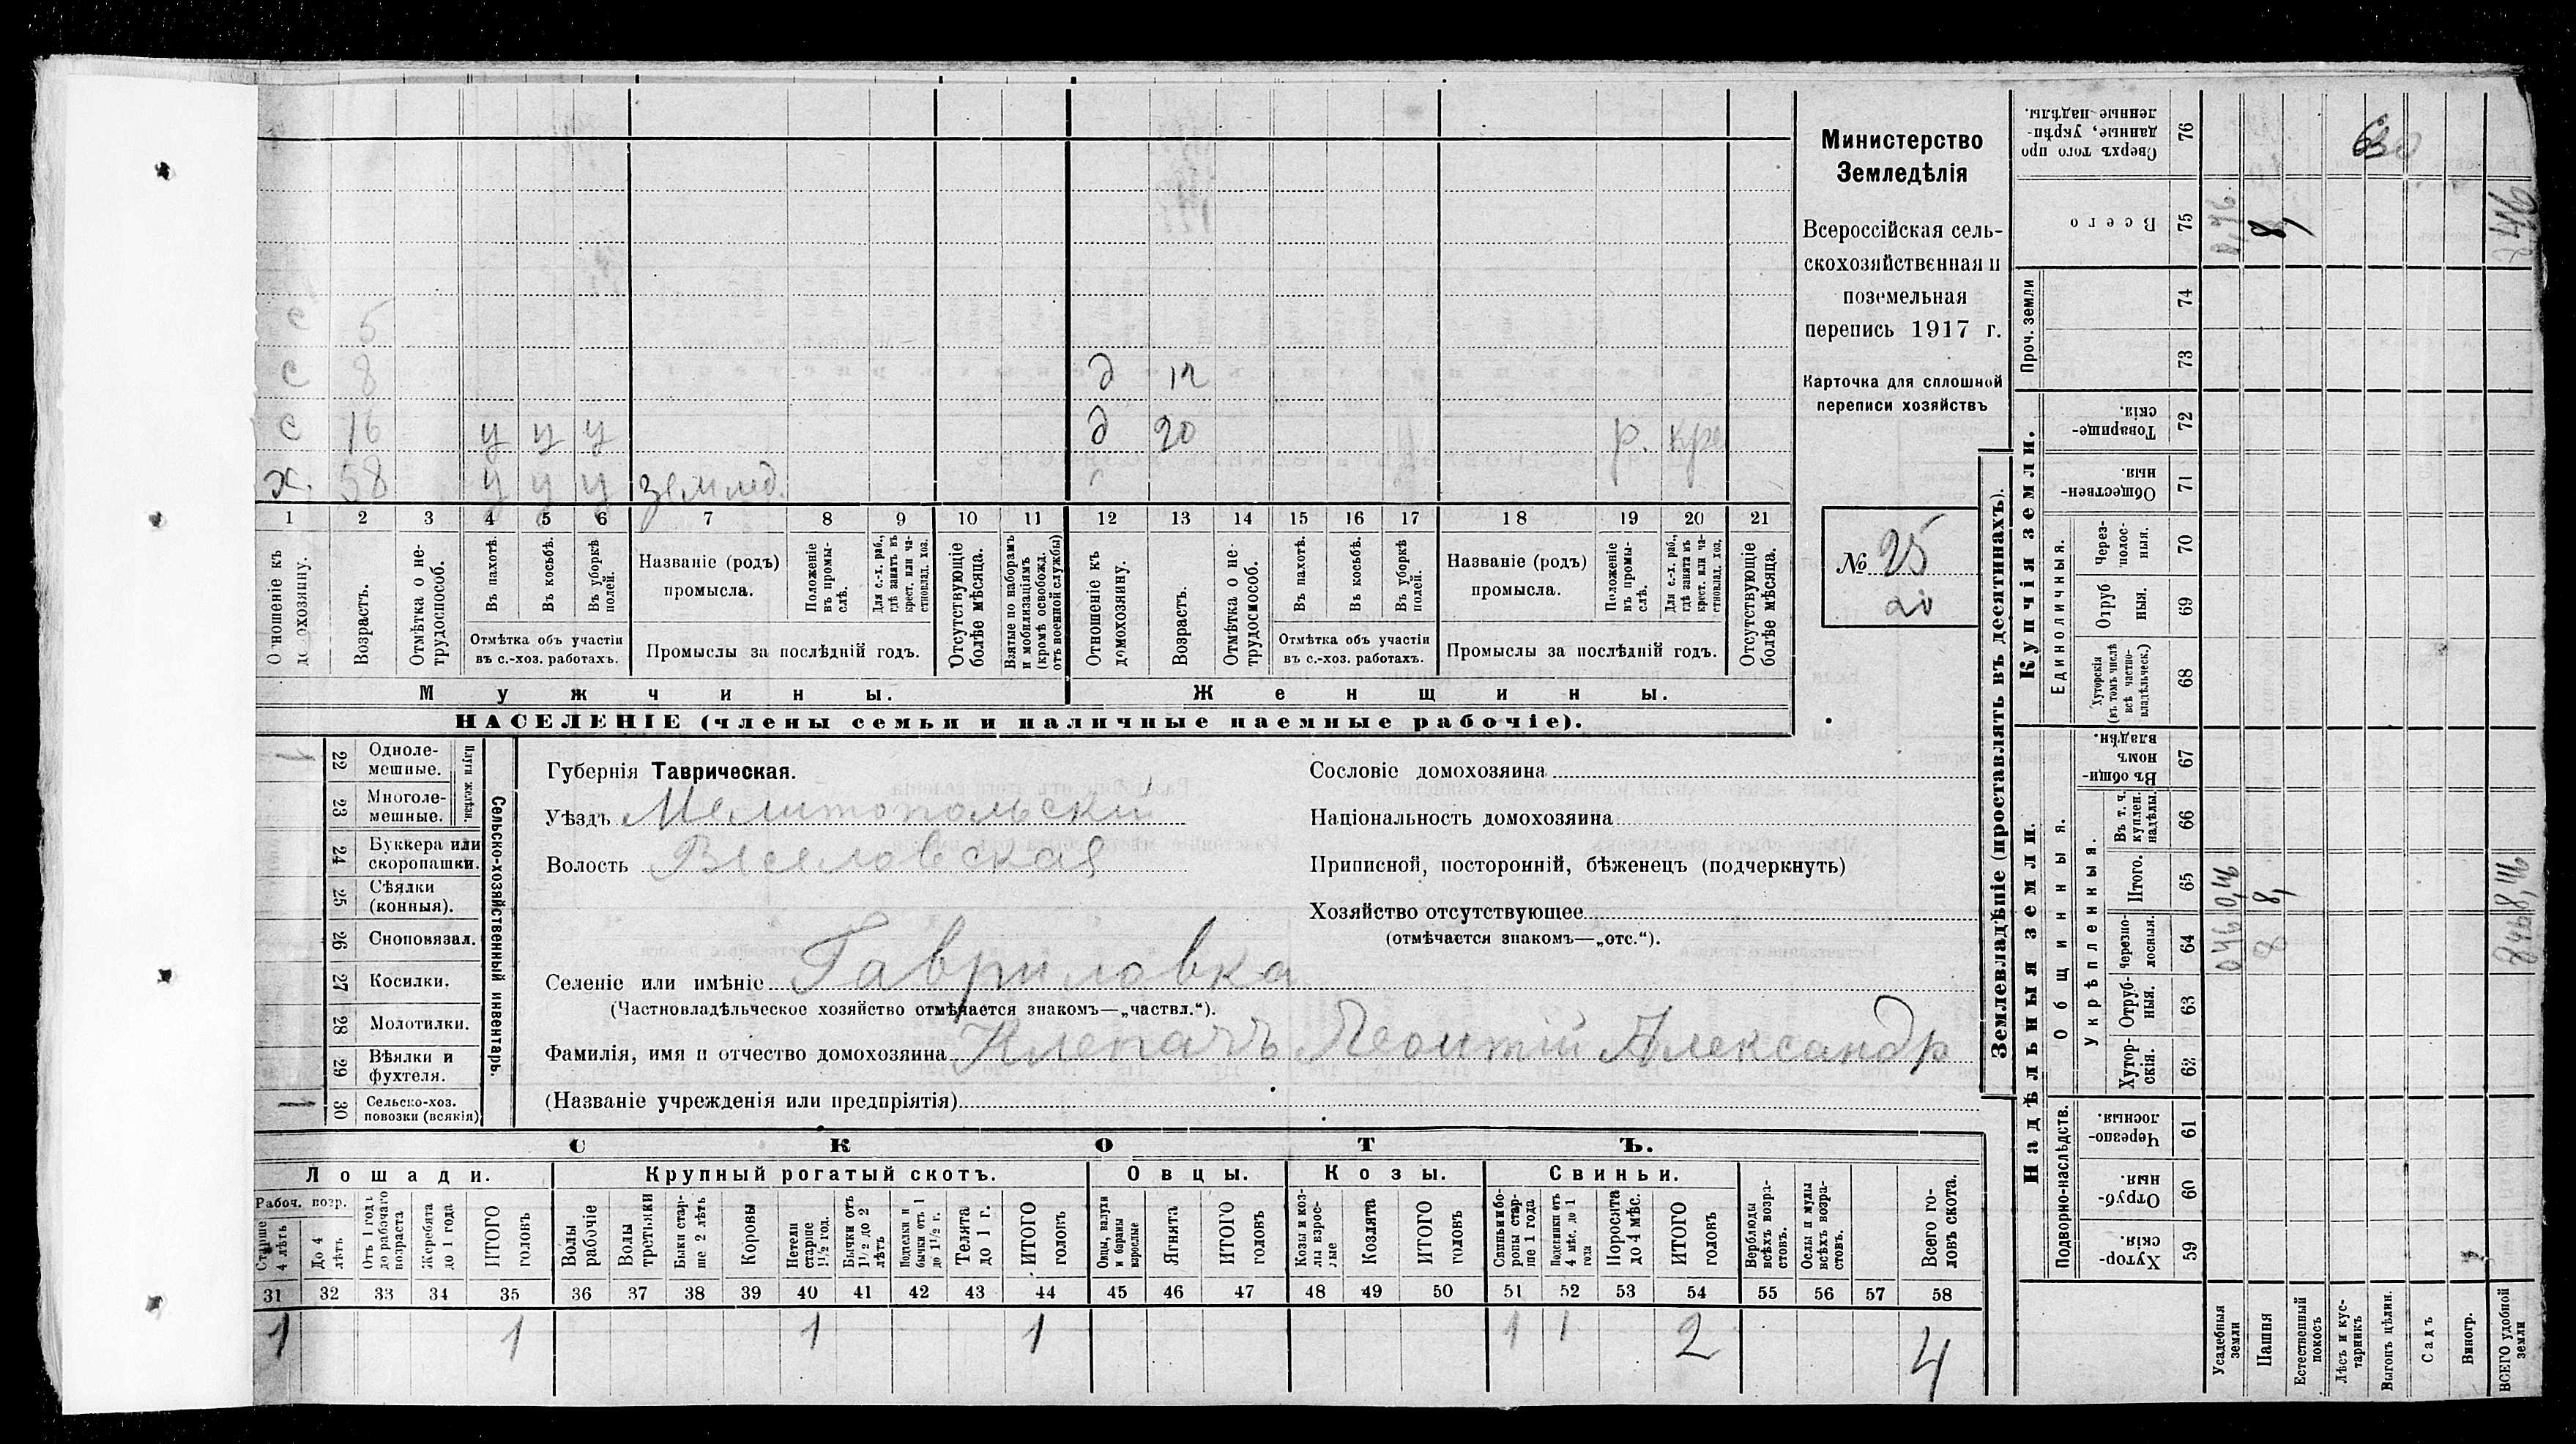 Министерство
Земледѣлія
Всероссійская сель-
скохозяйственная и
поземельная
перепись 1917 г.
Карточка для сплошной
переписи хозяйствъ
№ 25
20
с 5
с 8 д 12
с 16 у у у д 20 р. кре
х. 58 у у у землед.
1 2 3 4 5 6 7 8 9 10 11 12 13 14 15 16 17 18 19 20 21
Отношеніе къ домохозяину.
Возрастъ.
Отмѣтка о не-
трудоспособ.
Въ пахотѣ.
Въ косьбѣ.
Въ уборкѣ
полей.
Отмѣтка объ участіи
въ с.-хоз. работахъ.
Названіе (родъ)
промысла.
Положеніе
въ промы-
слѣ.
Для с.-х. раб.,
гдѣ занятъ въ
крест. или ча-
стновлад. хоз.
Промыслы за послѣдній годъ.
Отсутствующіе
болѣе мѣсяца.
Взятые по наборамъ
и мобилизаціямъ
(кромѣ освобожд.
отъ военной службы)
Отношеніе къ
домохозяину.
Возрастъ.
Отмѣтка о не-
трудоспособ.
Въ пахотѣ.
Въ косьбѣ.
Въ уборкѣ
полей.
Отмѣтка объ участіи
въ с.-хоз. работахъ.
Названіе (родъ)
промысла.
Положеніе
въ промы-
слѣ.
Для с.-х. раб.,
гдѣ занята въ
крест. или ча-
стновлад. хоз.
Промыслы за послѣдній годъ.
Отсутствующіе
болѣе мѣсяца.
Мужчины. Женщины.
НАСЕЛЕНІЕ (члены семьи и наличные наемные рабочіе).
Сельско-хозяйственный инвентарь.
Плуги желѣзн.
1 22 Одноле-
мешные.
23 Многоле-
мешные.
24 Буккера или
скоропашки.
25 Сѣялки
(конныя).
26 Сноповязал.
27 Косилки.
28 Молотилки.
29 Вѣялки и
фухтеля.
1 30 Сельско-хоз.
повозки (всякія)
Губернія Таврическая.
Уѣздъ Мелитопольский
Волость Веселовская
Селеніе или имѣніе Гавриловка
(Частновладѣльческое хозяйство отмѣчается знакомъ—„частвл.“).
Фамилія, имя и отчество домохозяина Клепачъ Леонтій Александр
(Названіе учрежденія или предпріятія)
Сословіе домохозяина
Національность домохозяина
Приписной, посторонній, бѣженецъ (подчеркнуть)
Хозяйство отсутствующее
(отмѣчается знакомъ—„отс.“).
СКОТЪ.
Лошади. Крупный рогатый скотъ. Овцы. Козы. Свиньи.
Рабоч. возр.
Старше
4 лѣтъ
До 4
лѣтъ
Отъ 1 года
до рабочаго
возраста
Жеребята
до 1 года
ИТОГО
головъ
Волы
рабочіе
Волы
третьяки
Быки стар-
ше 2 лѣтъ
Коровы
Нетели
старше
1½ год.
Бычки отъ
1½ до 2
лѣтъ
Подтелки и
бычки отъ 1
до 1½ г.
Телята
до 1 г.
ИТОГО
головъ
Овцы, валухи
и бараны
взрослые
Ягнята
ИТОГО
головъ
Козы и коз-
лы взрос-
лые
Козлята
ИТОГО
головъ
Свиньи и бо-
ровы стар-
ше 1 года
Подсвинки отъ
4 мѣс. до 1
года
Поросята
до 4 мѣс.
ИТОГО
головъ
Верблюды
всѣхъ возра-
стовъ.
Ослы и мулы
всѣхъ возра-
стовъ.
Всего го-
ловъ скота.
31 32 33 34 35 36 37 38 39 40 41 42 43 44 45 46 47 48 49 50 51 52 53 54 55 56 57 58
1 1 1 1 1 1 2 4
Землевладѣніе (проставлять въ десятинахъ).
Надѣльныя земли.
Купчія земли.
Проч. земли
Подворно-наслѣдств.
Общинныя.
Укрѣпленныя.
Единоличныя.
Сверхъ того про
данные, укрѣп-
ленные надѣлы. 76 630
Всего 75 8,46 8, 8 46
74
73
Товарище-
скія. 72
Обществен-
ныя. 71
Через-
полос-
ныя. 70
Отруб
ныя. 69
Хуторскія
(въ томъ числѣ
всѣ частно-
владѣльческ.) 68
Въ общи-
номъ
владѣн. 67
Въ т. ч.
куплен.
надѣлы. 66
Итого. 65 0,46 8, 8,46
Черезпо-
лосныя. 64 0 46 8 8 46
Отруб-
ныя. 63
Хутор-
скія. 62
Черезпо-
лосныя. 61
Отруб-
ныя. 60
Хутор-
скія. 59
Усадебныя
земли
Пашня
Естественный
покосъ
Лѣсъ и кус-
тарникъ
Выгонъ цѣлин.
Садъ
Виногр.
ВСЕГО удобной
земли